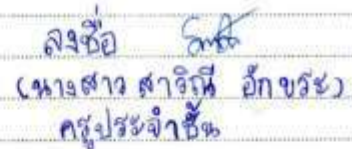 ลงชื่อ
(นางสาว สาริณี อักขระ)
ครูประจำชั้น